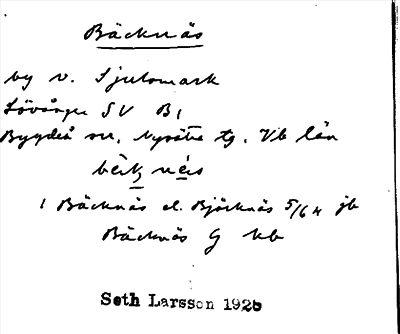 Bäcknäs
by v. Sjulsmark
Lövånger SV B1
Bygdeå sn. Nysätra tg. Vb län
1 Bäcknäs el. Björknäs 5/64 jb
Bäcknäs G kb
Seth Larsson 1926